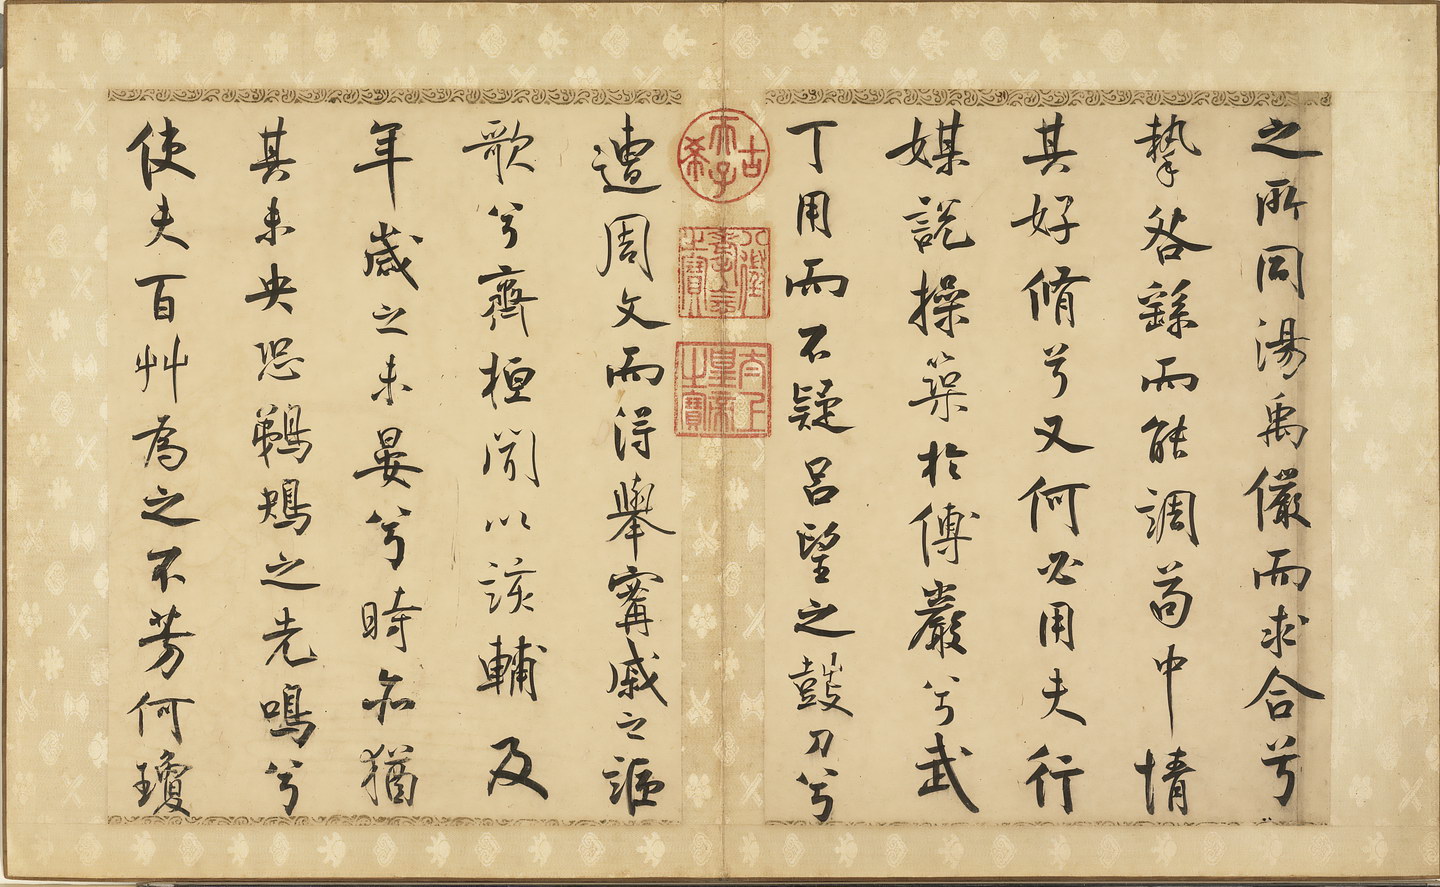 之所同湯禹儼而求合兮
摯咎繇而能調苟中情
其好脩兮又何必用夫行
媒說操築於傅巖兮武
丁用而不疑呂望之鼓刀兮
古希天子
八徵耄念之寶
太上皇帝之寶
遭周文而得舉甯戚之謳
歌兮齊桓聞以該輔及
年歲之未晏兮時亦猶
其未央恐鵜鴂之先鳴兮
使夫百艸為之不芳何瓊